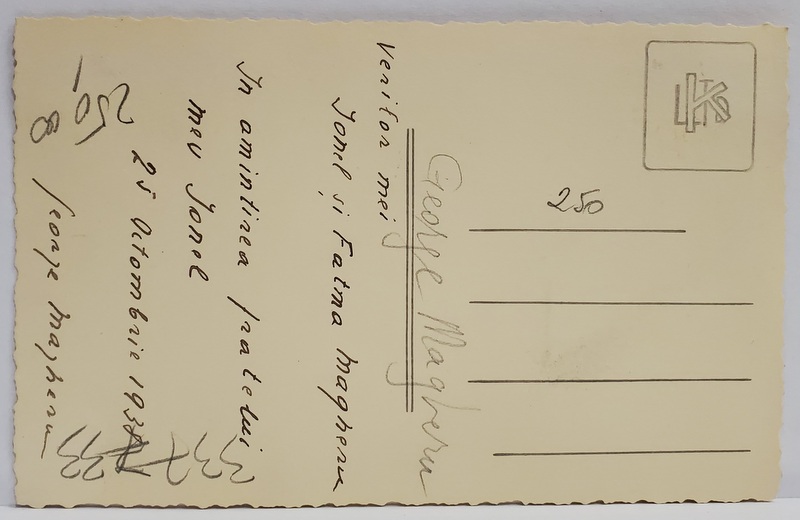 Verilor mei
Ionel și Fatma Magheru
In amintirea fratelui
meu Ionel
25 Octombrie 193
George Magheru
George Magheru
250
250
8